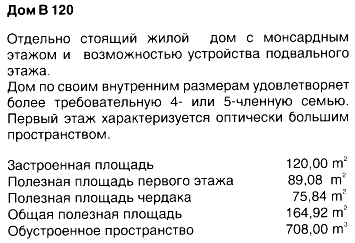 Дом В 120
Отдельно стоящий жилой дом с монсардным
этажом и возможностью устройства подвального
этажа.
Дом по своим внутренним размерам удовлетворяет
более требовательную 4- или 5-членную семью.
Первый этаж характеризуется оптически большим
пространством.
Застроенная площадь 120,00 m²
Полезная площадь первого этажа 89,08 m²
Полезная площадь чердака 75,84 m²
Общая полезная площадь 164,92 m²
Обустроенное пространство 708,00 m³